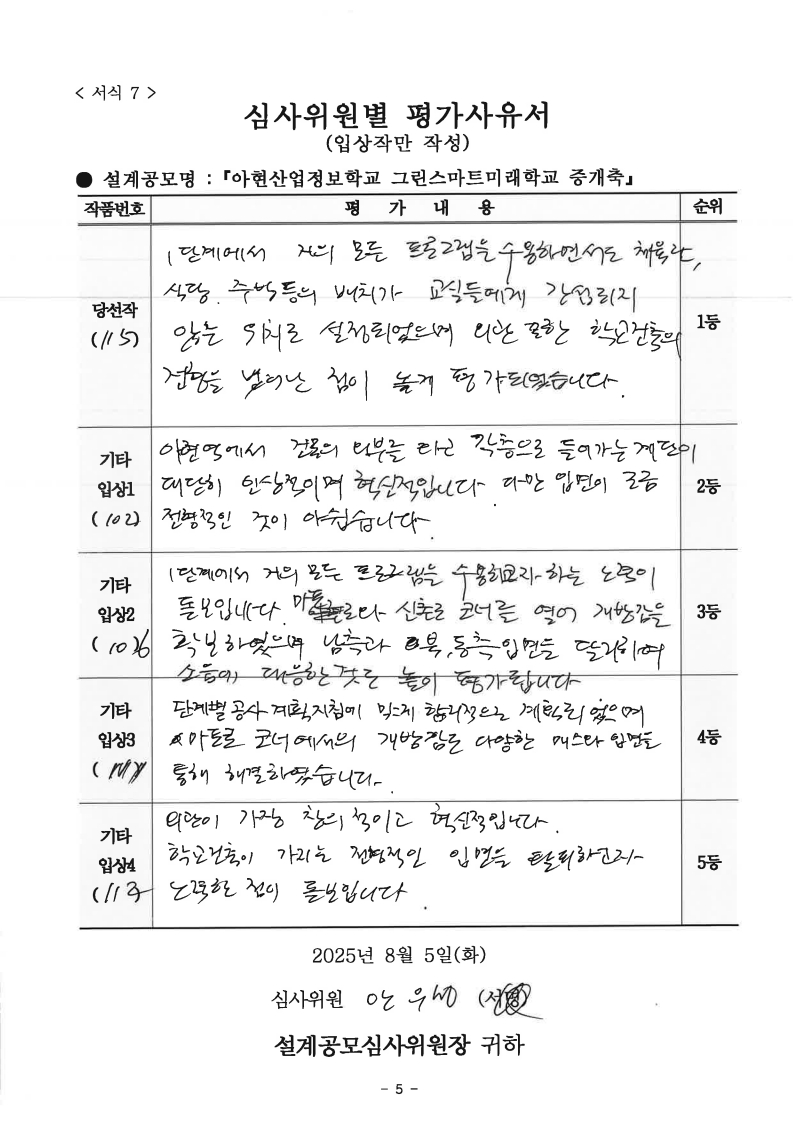 < 서식 7 >
심사위원별 평가사유서
(입상작만 작성)
● 설계공모명 : 『아현산업정보학교 그린스마트미래학교 증개축』
작품번호 평 가 내 용 순위
당선작
(115)
1단계에서 거의 모든 프로그램을 수용하면서도 체육관,
식당, 주방 등의 배치가 교실들에게 간섭되지
않는 위치로 설정되었으며 외관 또한 학교건축의
전형을 벗어난 점이 높게 평가되었습니다.
1등
기타
입상1
(102)
아현역에서 건물의 외부를 타고 각층으로 들어가는 계단이
대단히 인상적이며 혁신적입니다. 다만 입면이 조금
전형적인 것이 아쉽습니다.
2등
기타
입상2
(106)
1단계에서 거의 모든 프로그램을 수용하고자 하는 노력이
돋보입니다. 신촌로 코너를 열어 개방감을
확보하였으며 남측과 북,동측 입면을 달리하여
소음에 대응한 것은 높이 평가됩니다
3등
기타
입상3
단계별 공사 계획지침에 맞게 합리적으로 계획되었으며
마포로 코너에서의 개방감은 다양한 매스와 입면을
통해 해결하였습니다.
4등
기타
입상4
(113)
외관이 가장 창의적이고 혁신적입니다.
학교건축이 가지는 전형적인 입면을 탈피하고자
노력한 점이 돋보입니다.
5등
2025년 8월 5일(화)
심사위원 안우성 (서명)
설계공모심사위원장 귀하
- 5 -